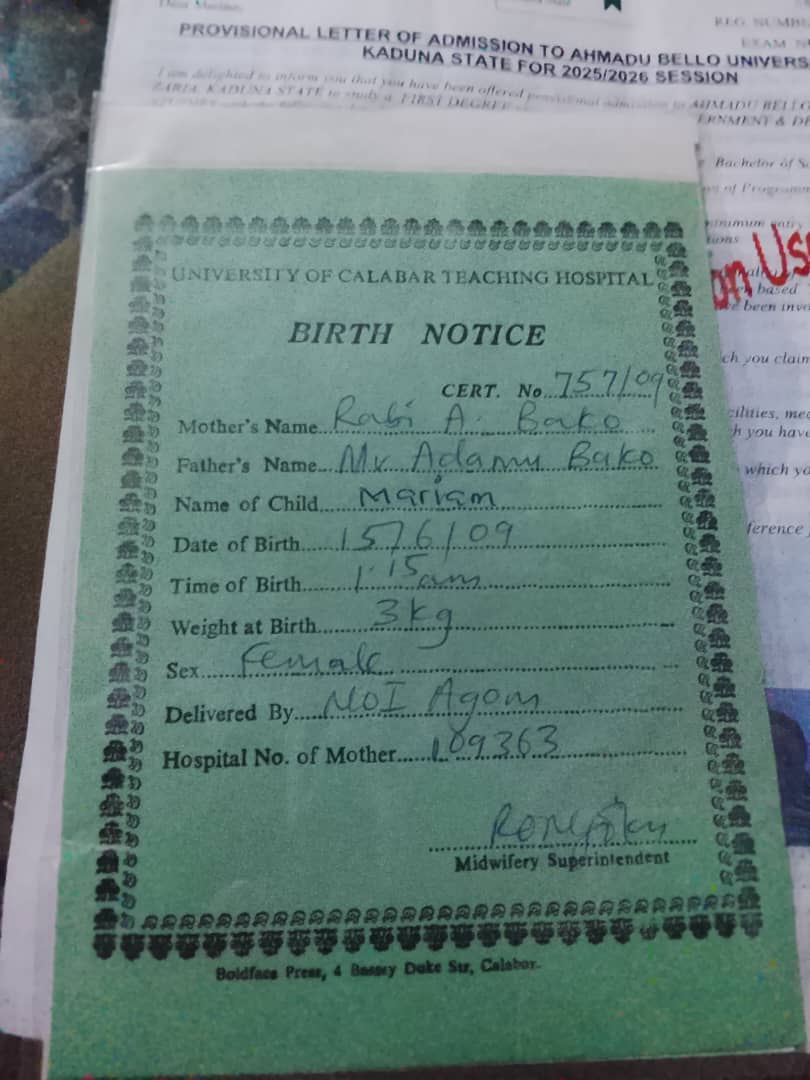 PROVISIONAL LETTER OF ADMISSION TO AHMADU BELLO UNIVERS
KADUNA STATE FOR 2025/2026 SESSION
I am delighted to inform you that you have been offered provisional admission to AHMADU BELLO
ZARIA, KADUNA STATE to study a FIRST DEGREE
ERNMENT & DE
Bachelor of S
of Programm
on Us
based
been invo
ch you claim
cilities, med
h you have
which yo
ference
UNIVERSITY OF CALABAR TEACHING HOSPITAL
BIRTH NOTICE
CERT. No...757/09
Mother's Name...Rabi A. Bako
Father's Name...Mr Adamu Bako
Name of Child...Mariam
Date of Birth...15/6/09
Time of Birth...1.15am
Weight at Birth...3kg
Sex...Female
Delivered By...
Hospital No. of Mother...109363
Midwifery Superintendent
Boldface Press, 4 Bassey Duke Str, Calabar.